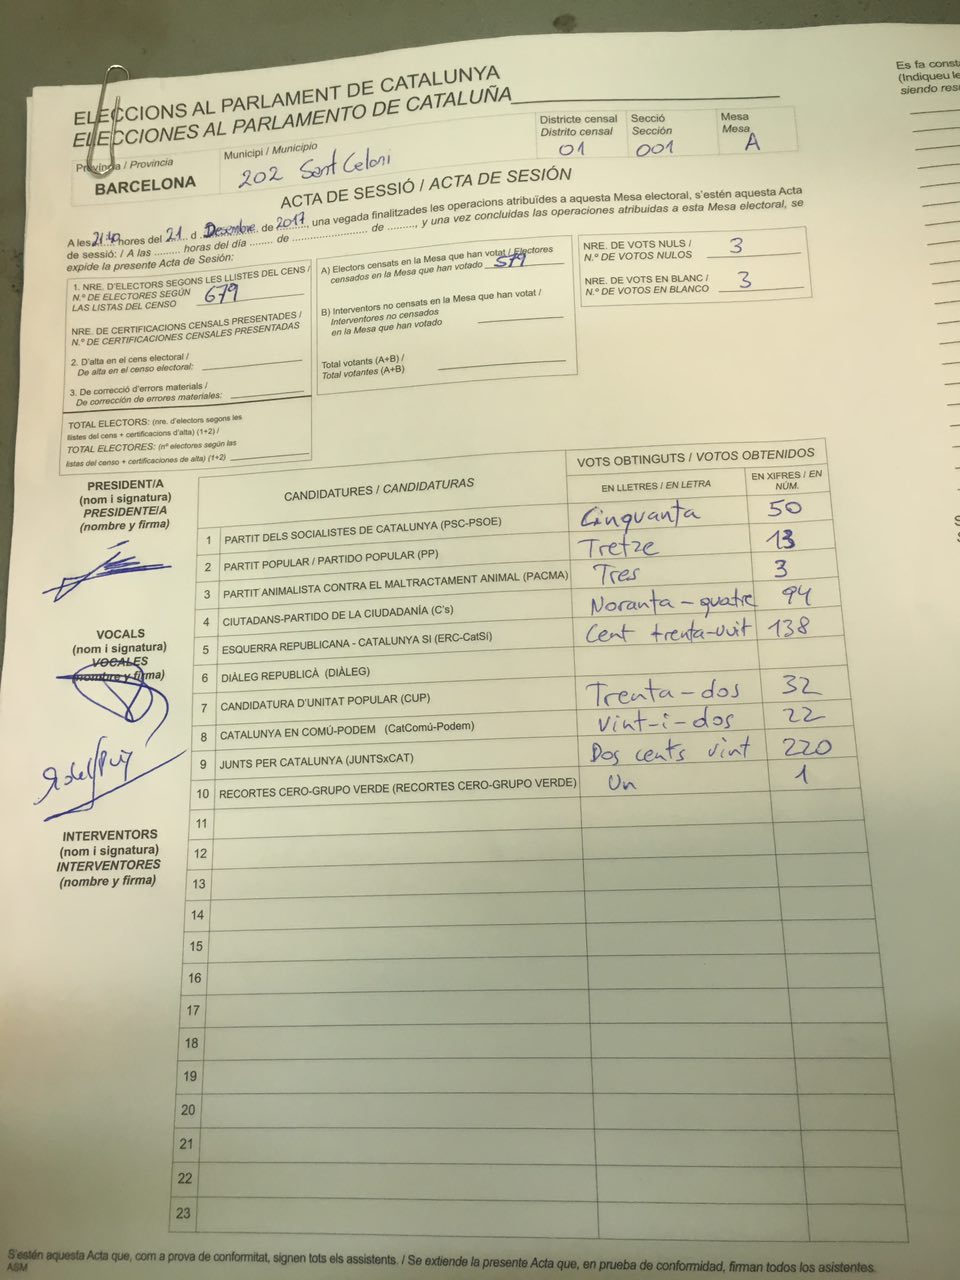 ELECCIONS AL PARLAMENT DE CATALUNYA
ELECCIONES AL PARLAMENTO DE CATALUÑA
Província / Provincia
BARCELONA
Municipi / Municipio
202 Sant Celoni
Districte censal
Distrito censal
01
Secció
Sección
001
Mesa
Mesa
A
ACTA DE SESSIÓ / ACTA DE SESIÓN
A les 21:40 hores del 21 d Desembre de 2017, una vegada finalitzades les operacions atribuïdes a aquesta Mesa electoral, s'estén aquesta Acta
de sessió: / A las ......... horas del día ........ de ......................... de ........., y una vez concluidas las operaciones atribuidas a esta Mesa electoral, se
expide la presente Acta de Sesión:
1. NRE. D'ELECTORS SEGONS LES LLISTES DEL CENS /
N.º DE ELECTORES SEGÚN
LAS LISTAS DEL CENSO 679
NRE. DE CERTIFICACIONS CENSALS PRESENTADES /
N.º DE CERTIFICACIONES CENSALES PRESENTADAS
2. D'alta en el cens electoral /
De alta en el censo electoral:
3. De correcció d'errors materials /
De corrección de errores materiales:
TOTAL ELECTORS: (nre. d'electors segons les
llistes del cens + certificacions d'alta) (1+2) /
TOTAL ELECTORES: (nº electores según las
listas del censo + certificaciones de alta) (1+2)
A) Electors censats en la Mesa que han votat / Electores
censados en la Mesa que han votado 579
B) Interventors no censats en la Mesa que han votat /
Interventores no censados
en la Mesa que han votado
Total votants (A+B) /
Total votantes (A+B)
NRE. DE VOTS NULS /
N.º DE VOTOS NULOS 3
NRE. DE VOTS EN BLANC /
N.º DE VOTOS EN BLANCO 3
Es fa const
(Indiqueu le
siendo res
PRESIDENT/A
(nom i signatura)
PRESIDENTE/A
(nombre y firma)
VOCALS
(nom i signatura)
VOCALES
(nombre y firma)
INTERVENTORS
(nom i signatura)
INTERVENTORES
(nombre y firma)
CANDIDATURES / CANDIDATURAS
VOTS OBTINGUTS / VOTOS OBTENIDOS
EN LLETRES / EN LETRA
EN XIFRES / EN
NÚM.
1 PARTIT DELS SOCIALISTES DE CATALUNYA (PSC-PSOE) Cinquanta 50
2 PARTIT POPULAR / PARTIDO POPULAR (PP) Tretze 13
3 PARTIT ANIMALISTA CONTRA EL MALTRACTAMENT ANIMAL (PACMA) Tres 3
4 CIUTADANS-PARTIDO DE LA CIUDADANÍA (C's) Noranta-quatre 94
5 ESQUERRA REPUBLICANA - CATALUNYA SI (ERC-CatSí) Cent trenta-vuit 138
6 DIÀLEG REPUBLICÀ (DIÀLEG)
7 CANDIDATURA D'UNITAT POPULAR (CUP) Trenta-dos 32
8 CATALUNYA EN COMÚ-PODEM (CatComú-Podem) Vint-i-dos 22
9 JUNTS PER CATALUNYA (JUNTSxCAT) Dos cents vint 220
10 RECORTES CERO-GRUPO VERDE (RECORTES CERO-GRUPO VERDE) Un 1
11
12
13
14
15
16
17
18
19
20
21
22
23
S'estén aquesta Acta que, com a prova de conformitat, signen tots els assistents. / Se extiende la presente Acta que, en prueba de conformidad, firman todos los asistentes.
ASM